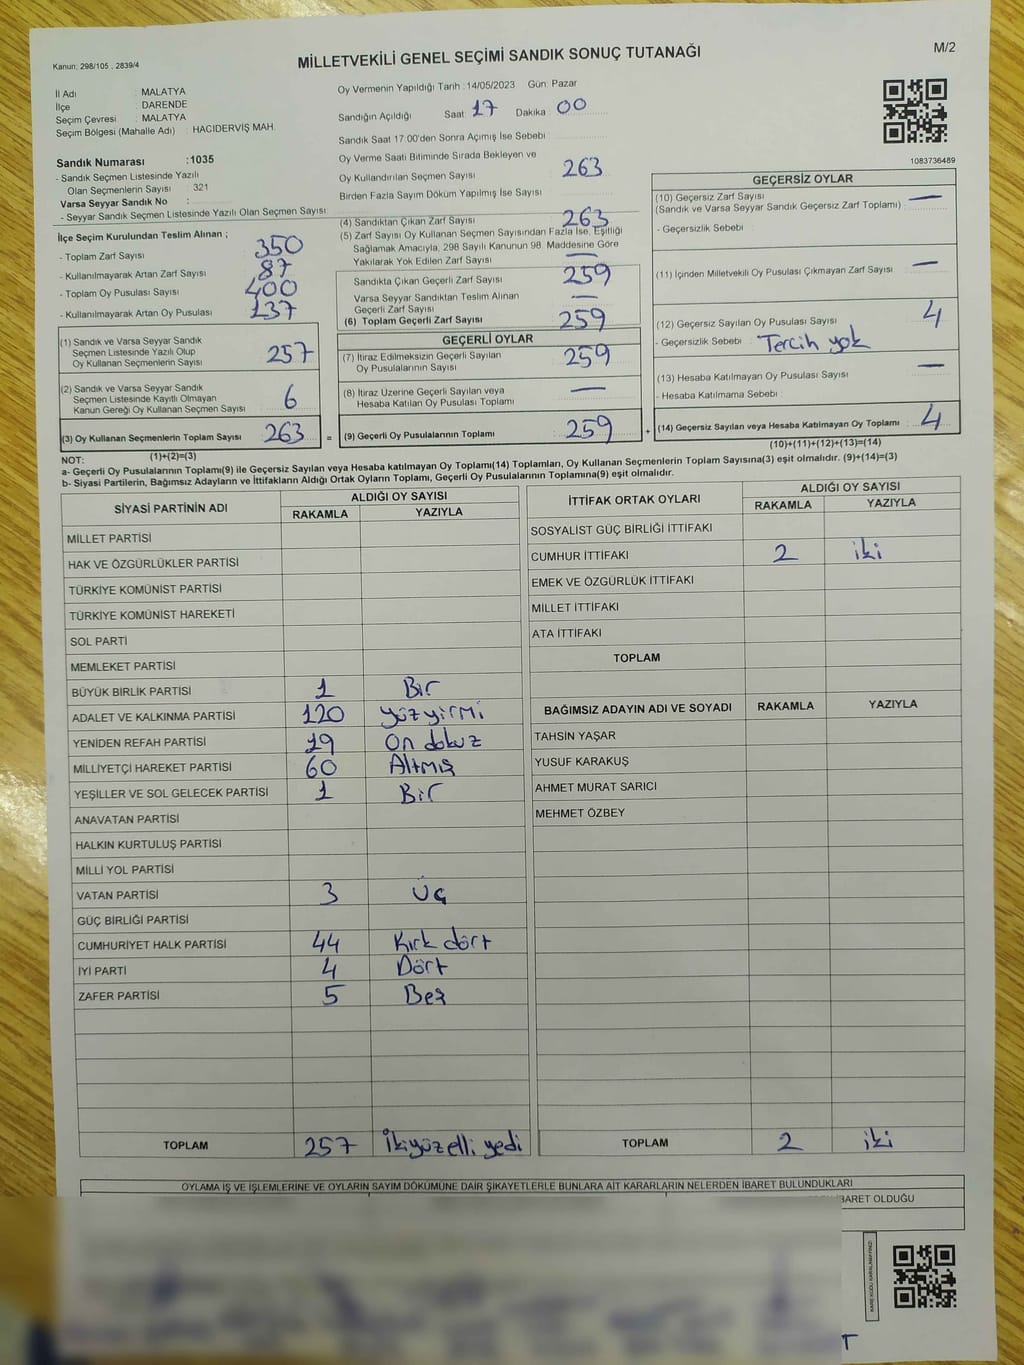 Kanun: 298/105 , 2839/4
MİLLETVEKİLİ GENEL SEÇİMİ SANDIK SONUÇ TUTANAĞI
M/2
İl Adı : MALATYA
İlçe : DARENDE
Seçim Çevresi : MALATYA
Seçim Bölgesi (Mahalle Adı) : HACIDERVİŞ MAH.
Sandık Numarası :1035
- Sandık Seçmen Listesinde Yazılı
Olan Seçmenlerin Sayısı : 321
Varsa Seyyar Sandık No :
- Seyyar Sandık Seçmen Listesinde Yazılı Olan Seçmen Sayısı:
İlçe Seçim Kurulundan Teslim Alınan ;
- Toplam Zarf Sayısı : 350
- Kullanılmayarak Artan Zarf Sayısı : 87
- Toplam Oy Pusulası Sayısı : 400
- Kullanılmayarak Artan Oy Pusulası : 137
(1) Sandık ve Varsa Seyyar Sandık
Seçmen Listesinde Yazılı Olup
Oy Kullanan Seçmenlerin Sayısı : 257
(2) Sandık ve Varsa Seyyar Sandık
Seçmen Listesinde Kayıtlı Olmayan
Kanun Gereği Oy Kullanan Seçmen Sayısı : 6
(3) Oy Kullanan Seçmenlerin Toplam Sayısı : 263
(1)+(2)=(3)
Oy Vermenin Yapıldığı Tarih : 14/05/2023 Gün: Pazar
Sandığın Açıldığı Saat : 17 Dakika : 00
Sandık Saat 17:00'den Sonra Açımış İse Sebebi :
Oy Verme Saati Bitiminde Sırada Bekleyen ve
Oy Kullandırılan Seçmen Sayısı : 263
Birden Fazla Sayım Döküm Yapılmış İse Sayısı :
(4) Sandıktan Çıkan Zarf Sayısı : 263
(5) Zarf Sayısı Oy Kullanan Seçmen Sayısından Fazla İse, Eşitliği
Sağlamak Amacıyla, 298 Sayılı Kanunun 98. Maddesine Göre
Yakılarak Yok Edilen Zarf Sayısı : —
Sandıkta Çıkan Geçerli Zarf Sayısı : 259
Varsa Seyyar Sandıktan Teslim Alınan
Geçerli Zarf Sayısı : —
(6) Toplam Geçerli Zarf Sayısı : 259
GEÇERLİ OYLAR
(7) İtiraz Edilmeksizin Geçerli Sayılan
Oy Pusulalarının Sayısı : 259
(8) İtiraz Üzerine Geçerli Sayılan veya
Hesaba Katılan Oy Pusulası Toplamı : —
= (9) Geçerli Oy Pusulalarının Toplamı : 259 +
1083736489
GEÇERSİZ OYLAR
(10) Geçersiz Zarf Sayısı
(Sandık ve Varsa Seyyar Sandık Geçersiz Zarf Toplamı) : —
- Geçersizlik Sebebi :
(11) İçinden Milletvekili Oy Pusulası Çıkmayan Zarf Sayısı : —
(12) Geçersiz Sayılan Oy Pusulası Sayısı : 4
- Geçersizlik Sebebi : Tercih yok
(13) Hesaba Katılmayan Oy Pusulası Sayısı : —
- Hesaba Katılmama Sebebi :
(14) Geçersiz Sayılan veya Hesaba Katılmayan Oy Toplamı : 4
(10)+(11)+(12)+(13)=(14)
NOT:
a- Geçerli Oy Pusulalarının Toplamı(9) ile Geçersiz Sayılan veya Hesaba katılmayan Oy Toplamı(14) Toplamları, Oy Kullanan Seçmenlerin Toplam Sayısına(3) eşit olmalıdır. (9)+(14)=(3)
b- Siyasi Partilerin, Bağımsız Adayların ve İttifakların Aldığı Ortak Oyların Toplamı, Geçerli Oy Pusulalarının Toplamına(9) eşit olmalıdır.
SİYASİ PARTİNİN ADI ALDIĞI OY SAYISI
RAKAMLA YAZIYLA
MİLLET PARTİSİ
HAK VE ÖZGÜRLÜKLER PARTİSİ
TÜRKİYE KOMÜNİST PARTİSİ
TÜRKİYE KOMÜNİST HAREKETİ
SOL PARTİ
MEMLEKET PARTİSİ
BÜYÜK BİRLİK PARTİSİ 1 Bir
ADALET VE KALKINMA PARTİSİ 120 yüzyirmi
YENİDEN REFAH PARTİSİ 19 On dokuz
MİLLİYETÇİ HAREKET PARTİSİ 60 Altmış
YEŞİLLER VE SOL GELECEK PARTİSİ 1 Bir
ANAVATAN PARTİSİ
HALKIN KURTULUŞ PARTİSİ
MİLLİ YOL PARTİSİ
VATAN PARTİSİ 3 Üç
GÜÇ BİRLİĞİ PARTİSİ
CUMHURİYET HALK PARTİSİ 44 Kırk dört
İYİ PARTİ 4 Dört
ZAFER PARTİSİ 5 Beş
TOPLAM 257 İkiyüzelli yedi
İTTİFAK ORTAK OYLARI ALDIĞI OY SAYISI
RAKAMLA YAZIYLA
SOSYALİST GÜÇ BİRLİĞİ İTTİFAKI
CUMHUR İTTİFAKI 2 iki
EMEK VE ÖZGÜRLÜK İTTİFAKI
MİLLET İTTİFAKI
ATA İTTİFAKI
TOPLAM
BAĞIMSIZ ADAYIN ADI VE SOYADI RAKAMLA YAZIYLA
TAHSİN YAŞAR
YUSUF KARAKUŞ
AHMET MURAT SARICI
MEHMET ÖZBEY
TOPLAM 2 iki
OYLAMA İŞ VE İŞLEMLERİNE VE OYLARIN SAYIM DÖKÜMÜNE DAİR ŞİKAYETLERLE BUNLARA AİT KARARLARIN NELERDEN İBARET BULUNDUKLARI
İBARET OLDUĞU